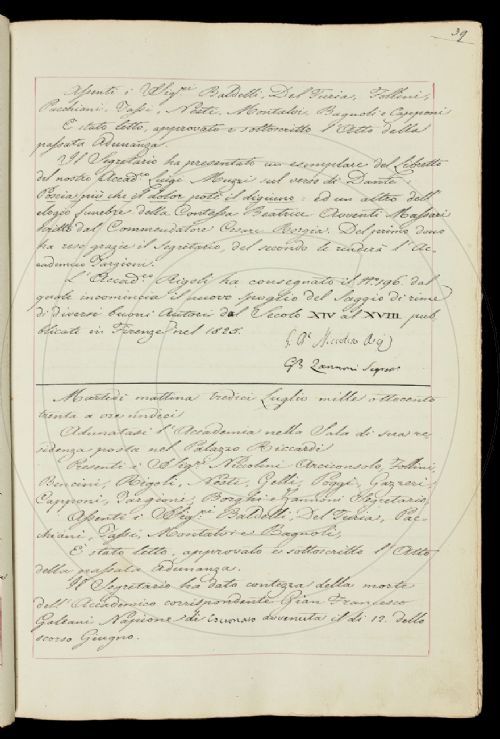 39
Assenti i Sig.ri Baldelli, Del Furia, Follini,
Pucchiani, Tassi, Nesti, Montalvi Bagnoli e Capponi
È stato letto, approvato e sottoscritto l'Atto della
passata Adunanza.
Il Segretario ha presentato un esemplare del Libretto
del nostro Accad.co Luigi Muzzi sul verso di Dante
Poscia più che il dolor potè il digiuno: ed un altro dell'
elogio funebre della Contessa Beatrice Avventi Massari
scritto dal Commendatore Cesare Borgia. Del primo dono
ha reso grazie il Segretario, del secondo le renderà l'Ac-
cademico Targioni.
L'Accad.co Rigoli ha consegnato il N.º 196. dal
quale incomincia il nuovo spoglio del Saggio di rime
di diversi buoni Autori dal Secolo XIV al XVIII pub-
blicato in Firenze nel 1825.
G. B. Niccolini
GB Zannoni Segret.
Martedì mattina tredici Luglio mille ottocento
trenta a ore undeci
Adunatasi l'Accademia nella Sala di sua re-
sidenza posta nel Palazzo Riccardi
Presenti i Sig.ri Niccolini Arciconsolo, Follini,
Bencini, Rigoli, Nesti, Gelli, Poggi, Gazzeri,
Capponi, Targioni, Borghi e Zannoni Segretario.
Assenti i Sig.ri Baldelli, Del Furia, Puc-
chiani, Tassi, Montalvi e Bagnoli,
È stato letto, approvato e sottoscritto l'Atto
della passata Adunanza.
Il Segretario ha dato contezza della morte
dell'Accademico corrispondente Gian Francesco
Galeani Napione di Cocconato avvenuta il dì 12. dello
scorso Giugno.